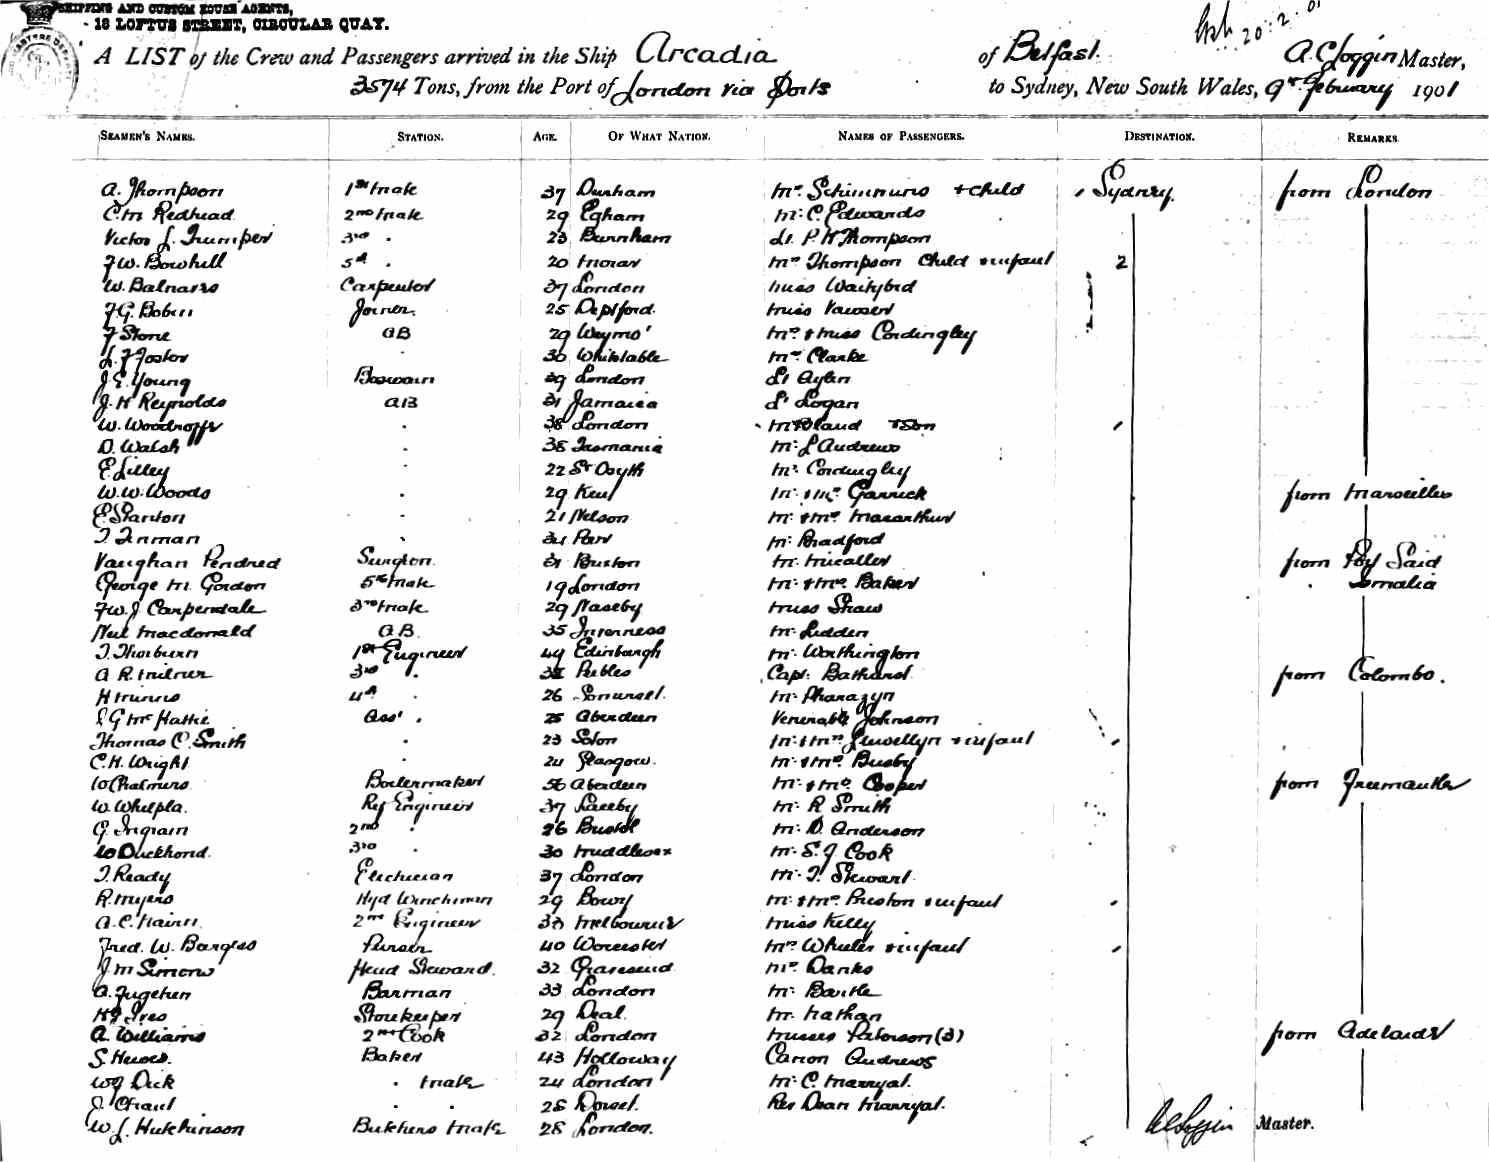 SHIPPING AND CUSTOM HOUSE AGENTS,
18 LOFTUS STREET, CIRCULAR QUAY.
20.2.01
A LIST of the Crew and Passengers arrived in the Ship Arcadia of Belfast. A.C. Loggin Master,
3574 Tons, from the Port of London via Ports to Sydney, New South Wales, 9th February 1901
SEAMEN'S NAMES. STATION. AGE. OF WHAT NATION. NAMES OF PASSENGERS. DESTINATION. REMARKS.
A. Thompson 1st Mate 37 Durham Mrs + child Sydney. from London
C.M. Redhead 2nd Mate 29 Egham Mr C. Edwards
Victor L. Trumper 3rd " 23 Burnham Lt. P.H. Thompson
F.W. Bowhill 5th " 20 Mrs Thompson Child + infant 2
W. Carpenter 37 London Miss
F.G. Joiner. 25 Deptford. Miss
F Stone AB 29 Weymo' Mrs + Miss Cordingley
L.F. Foster 30 Whitstable Mr. Clarke
J.E. Young Boswain 39 London Lt Aylin
J.H. Reynolds AB 31 Jamaica Lt Logan
W. Woodroffe 38 London Bland + Son
D. Walsh 38 Tasmania Mr. L Andrews
E. Lilley 22 St Osyth Mr. Cordingley
W.W. Woods 29 Kent Mr. + Mrs Garrick from Marseilles
E. Stanton 21 Nelson Mr. + Mrs Macarthur
T. Inman 34 Mr. Bradford
Vaughan Pendred Surgeon 31 Buxton Mr. from Port Said
George M. Gordon 5th Mate 19 London Mr. + Mrs. Baker " Ismalia
F.W.J. Carpendale 3rd Mate 29 Naseby Miss Shaw
Neil Macdonald AB. 35 Inverness Mr. Lidden
T. Thorburn 1st Engineer 49 Edinburgh Mr. Worthington
A.R. Milner 3rd " Peebles Capt. Bathurst from Colombo.
H Munro 4th " 26 Somerset. Mr. Pharazyn
Asst " 25 Aberdeen Venerable Johnson
Thomas C. Smith 23 Mr. + Mrs. Llewellyn + infant
C.H. Wright 24 Glasgow. Mr. + Mrs. Busby
W Chalmers Boilermaker 56 Aberdeen Mr. + Mrs Cooper from Freemantle
W. Whelpla. Ref Engineer 37 Laceby Mr. R Smith
G. Ingram 2nd " 26 Bristol Mr. D. Anderson
W Duckhond. 3rd " 30 Middlesex Mr. S.J Cook
T. Ready Electrician 37 London Mr. T. Stewart
R. Myers Hyd Winchman 29 Mr. + Mrs. Preston + infant
A.C. 2nd Engineer 33 Melbourne Miss Kelly
Fred. W. Barges Purser 40 Worcester Mrs Wheeler + infant
J.M Simons Head Steward. 32 Gravesend Mr. Danks
A. Barman 33 London Mr. Bartle
H.J. Ives Storekeeper 29 Deal. Mr. Nathan
A. Williams 2nd Cook 32 London Misses Paterson (3) from Adelaide
S. Baker 43 Holloway Canon Andrews
W.J. Dick " Mate 24 London Mr. C. Marryat.
J. " " 28 Dorset. Rev Dean Marryat.
W.J. Hutchinson Butchers Mate 28 London.
AC Loggin Master.